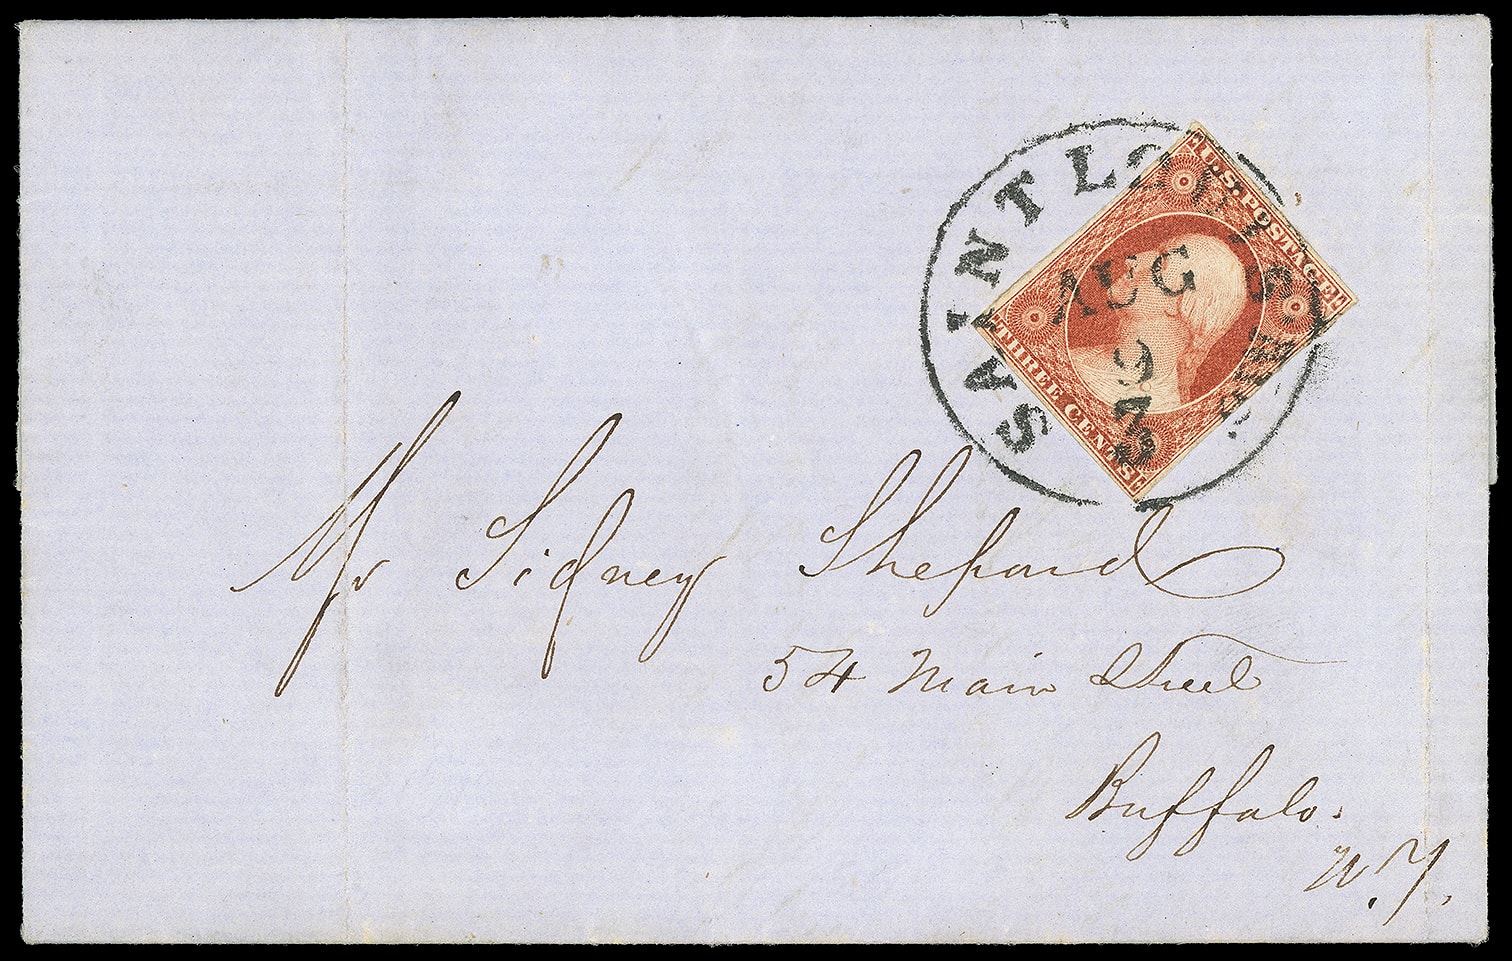 SAINT LOUIS Mo.
AUG
9
3
U.S. POSTAGE
THREE CENTS
Mr Sidney Shepard
54 Main Street
Buffalo.
N.Y.